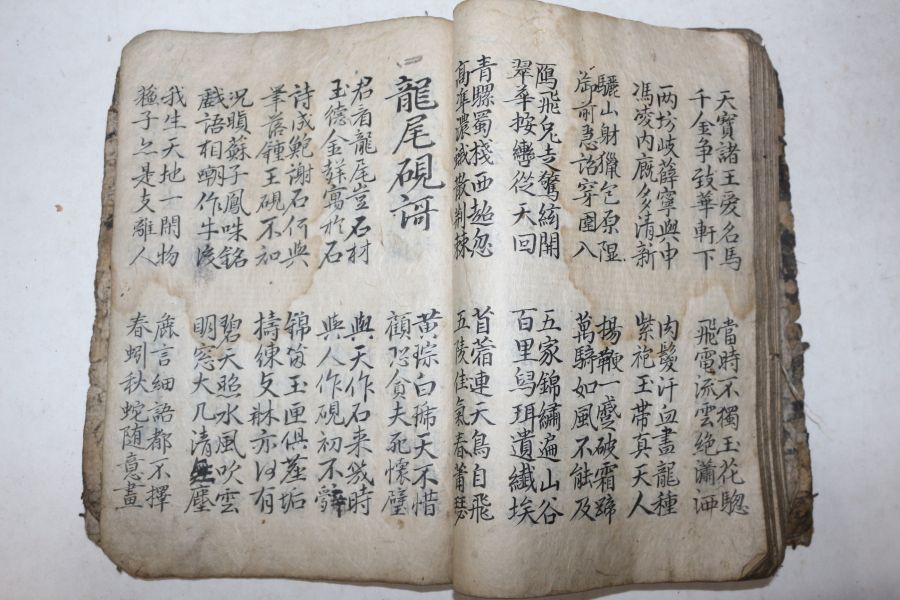 天寶諸王爱名馬
千金争致華軒下
當時不獨玉花驄
飛電流雲絶瀟洒
两坊岐薛寧與申
馮凌内廐多清新
肉鬉汗血盡龍種
紫袍玉帶真天人
驪山射獵包原隰
御前急詔穿圍入
揚鞭一蹙破霜蹄
萬騎如風不能及
鴈飛兔走驚絃開
翠華按轡從天回
五家錦繡遍山谷
百里舄珥遺纎埃
青騾蜀棧西超忽
高準濃蛾散荆棘
苜蓿連天鳥自飛
五陵佳氣春蕭瑟
龍尾硯謌
黄琮白琥天不惜
顧恐貪夫死懷璧
君看龍尾豈石材
玉德金聲寓於石
與天作石来幾時
與人作硯初不辭
詩成鮑謝石何與
筆落鍾王硯不知
錦茵玉匣俱塵垢
擣練支牀亦何有
况瞋蘇子鳳咮銘
戲語相嘲作牛後
碧天照水風吹雲
明窓大几清無塵
我生天地一閑物
蘇子亦是支離人
麁言細語都不擇
春蚓秋蛇随意畫